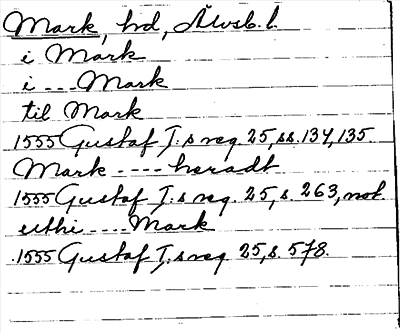 Mark, hd, Älvsb. l.
i Mark
i --- Mark
til Mark
1555 Gustaf I:s reg. 25, ss. 134, 135.
Mark ---- heradt
1555 Gustaf I:s reg. 25, s. 263, not.
uthi ---- Mark
1555 Gustaf I:s reg. 25, s. 578.